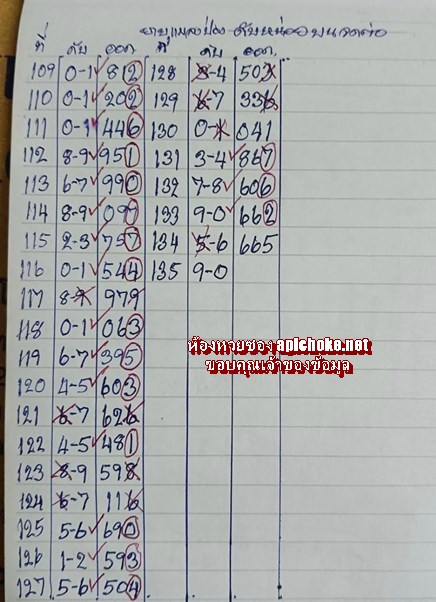 ยาบูแมลงป่อง ดับหน่วยบนจดต่อ
ที่ ดับ ออก ที่ ดับ ออก.
109 0-1 812 128 8-4 503
110 0-1 202 129 6-7 336
111 0-1 446 130 0-1 041
112 8-9 951 131 3-4 867
113 6-7 990 132 7-8 606
114 8-9 097 133 9-0 662
115 2-3 757 134 5-6 665
116 0-1 544 135 9-0
117 8-9 979
118 0-1 063
119 6-7 395
120 4-5 603
121 6-7 626
122 4-5 481
123 8-9 598
124 6-7 116
125 5-6 690
126 1-2 593
127 5-6 504
ห้องหวยซอง apichoke.net
ขอบคุณเจ้าของข้อมูล